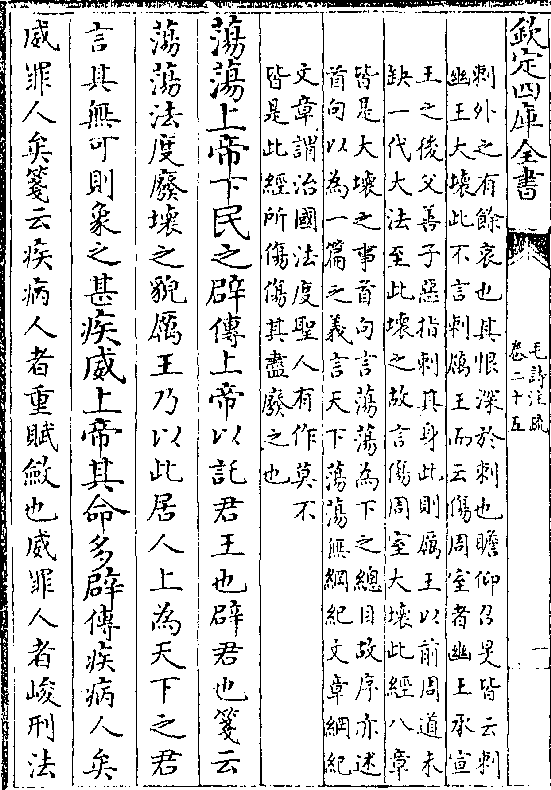 欽定四庫全書
毛詩注疏
卷二十五
一
刺外之有餘哀也其恨深於刺也瞻仰召旻皆云刺
幽王大壞此不言刺厲王而云傷周室者幽王承宣
王之後父善子惡指刺其身此則厲王以前周道未
缺一代大法至此壞之故言傷周室大壞此經八章
皆是大壞之事首句言蕩蕩為下之總目故序亦述
首句以為一篇之義言天下蕩蕩無綱紀文章綱紀
文章謂治國法度聖人有作莫不
皆是此經所傷傷其盡廢之也
蕩蕩上帝下民之辟傳上帝以託君王也辟君也箋云
蕩蕩法度廢壞之貌厲王乃以此居人上為天下之君
言其無可則象之甚疾威上帝其命多辟傳疾病人矣
威罪人矣箋云疾病人者重賦斂也威罪人者峻刑法